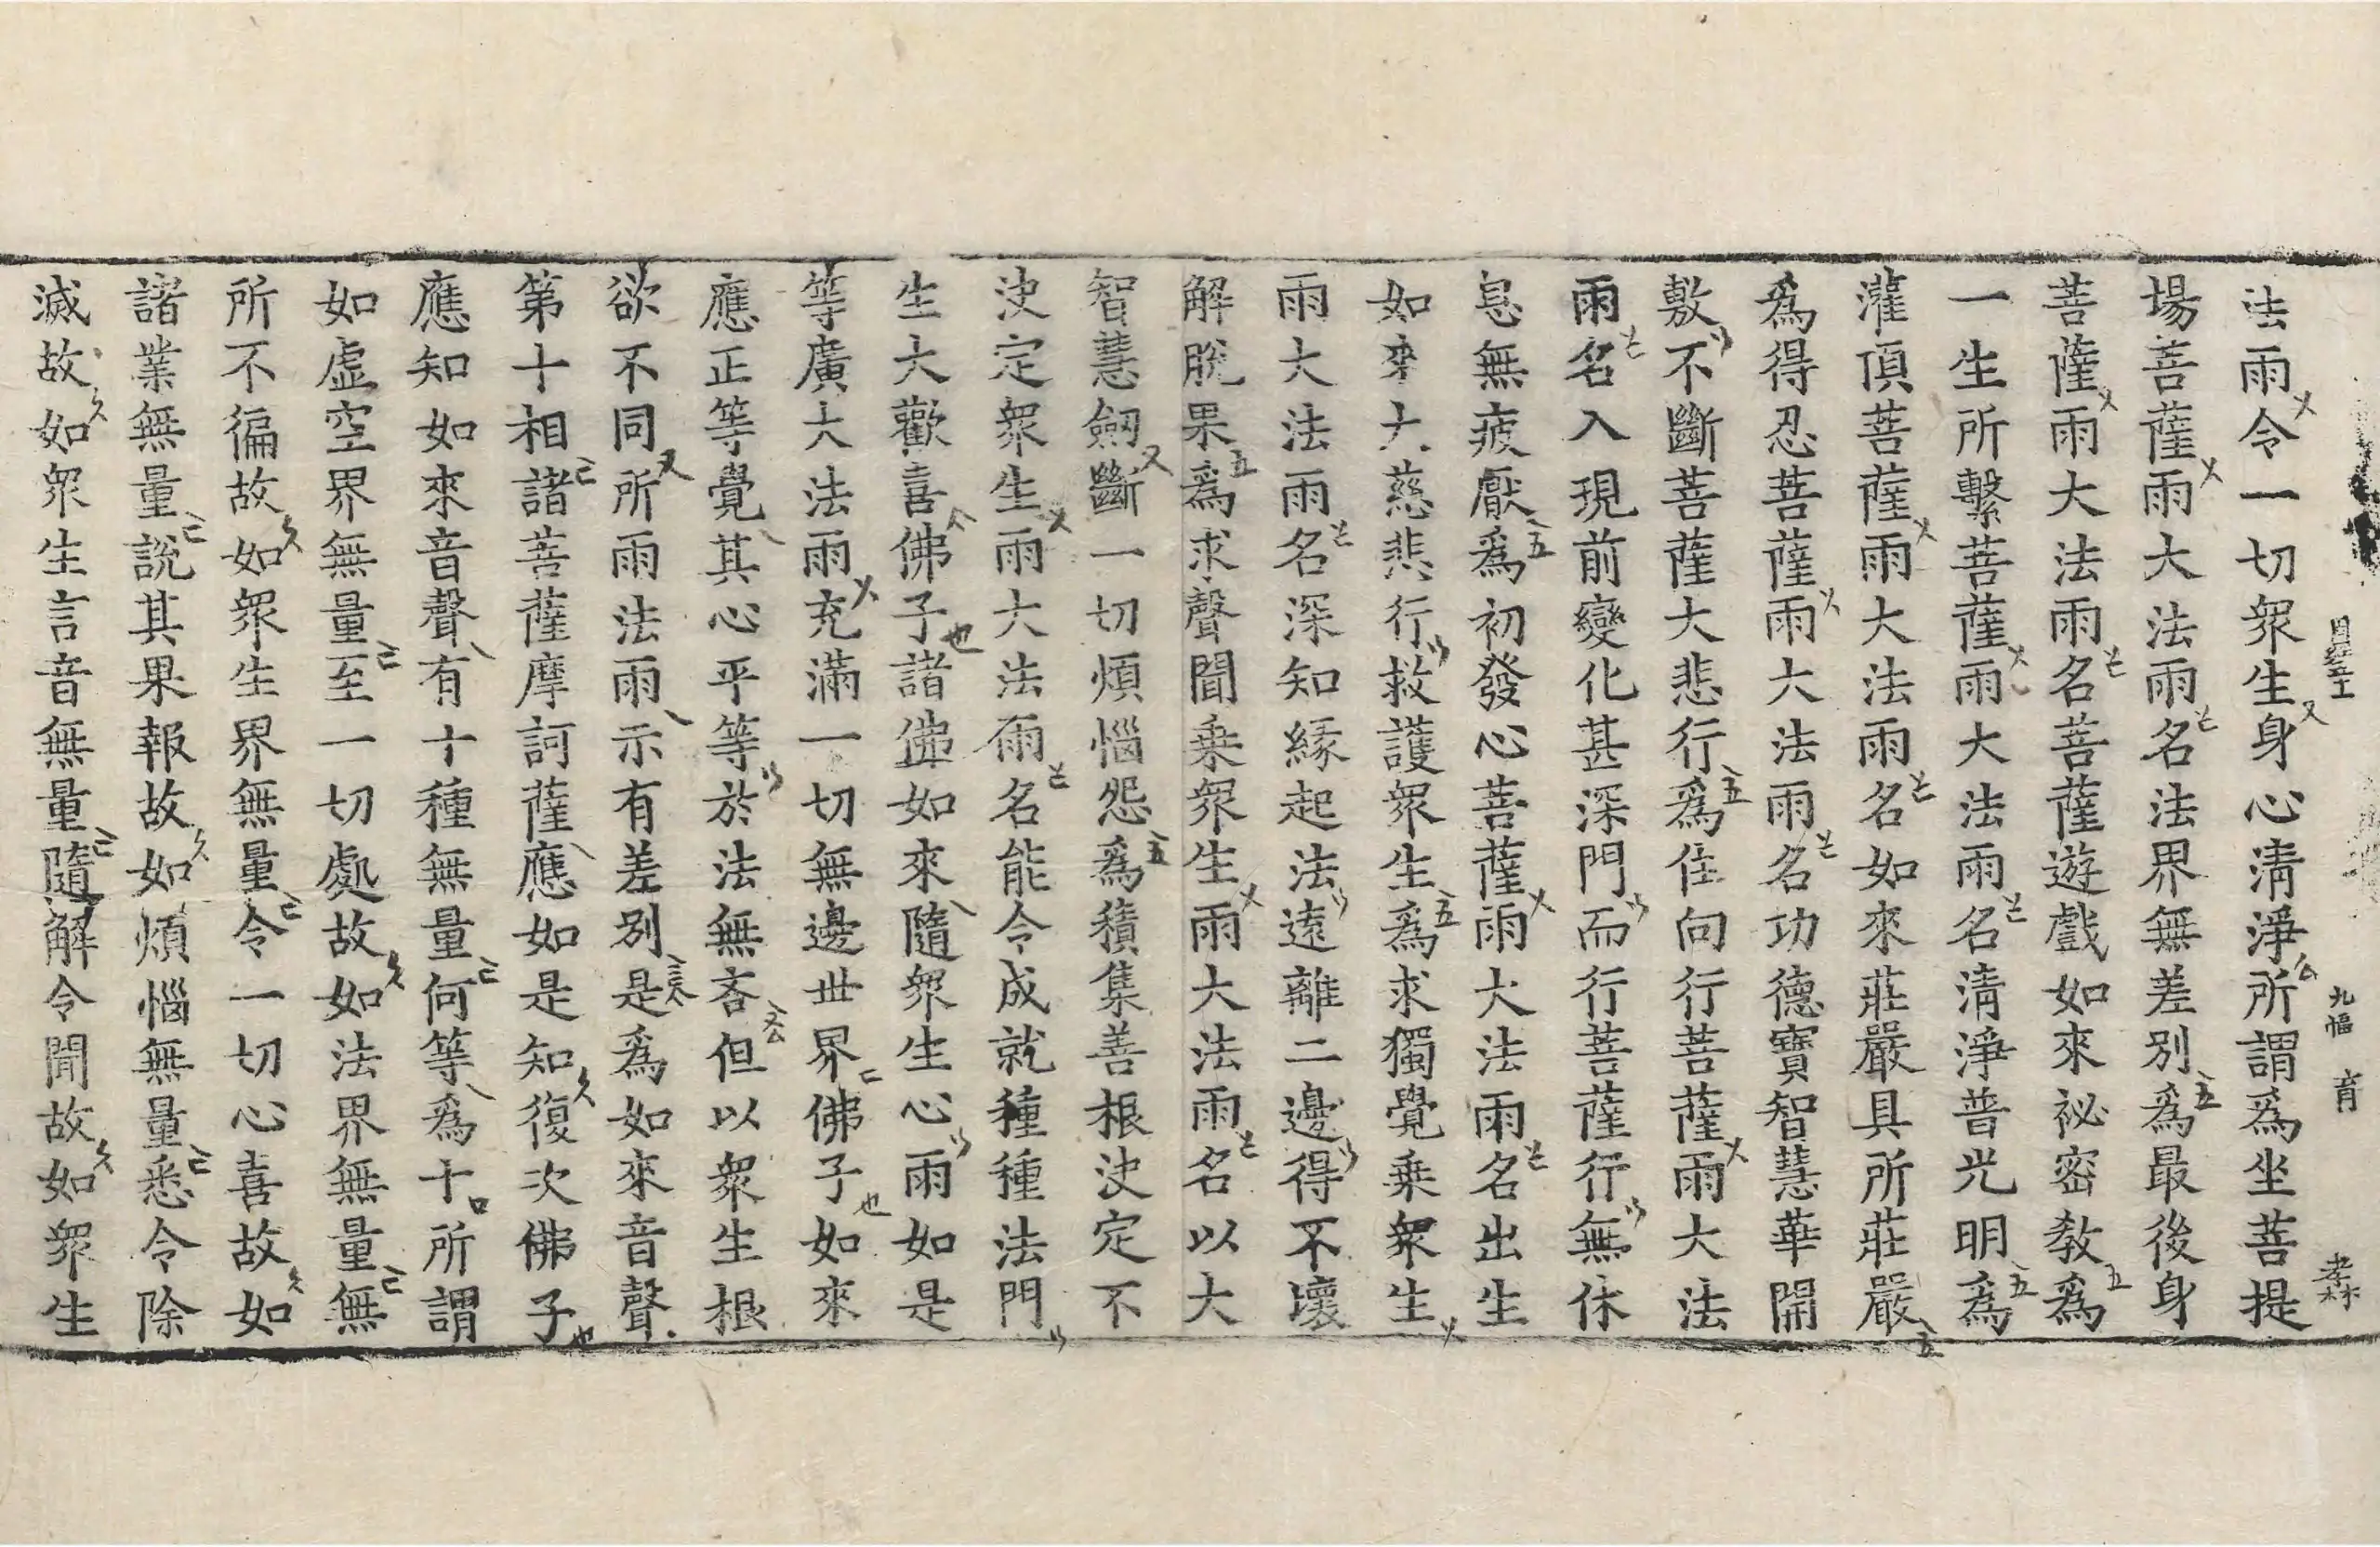 法雨令一切衆生身心清淨所謂爲坐菩提
場菩薩雨大法雨名法界無差別爲最後身
菩薩雨大法雨名菩薩遊戲如來祕密教爲
一生所繫菩薩雨大法雨名清淨普光明爲
灌頂菩薩雨大法雨名如來莊嚴具所莊嚴
爲得忍菩薩雨大法雨名功德寶智慧華開
敷不斷菩薩大悲行爲住向行菩薩雨大法
雨名入現前變化甚深門而行菩薩行無休
息無疲厭爲初發心菩薩雨大法雨名出生
如來大慈悲行救護衆生爲求獨覺乗衆生
雨大法雨名深知緣起法遠離二邊得不壞
解脫果爲求聲聞乗衆生雨大法雨名以大
智慧劒斷一切煩惱怨爲積集善根決定不
決定衆生雨大法雨名能令成就種種法門
生大歡喜佛子諸佛如來隨衆生心雨如是
等廣大法雨充滿一切無邊世界佛子如來
應正等覺其心平等於法無吝但以衆生根
欲不同所雨法雨示有差別是爲如來音聲
第十相諸菩薩摩訶薩應如是知復次佛子
應知如來音聲有十種無量何等爲十所謂
如虛空界無量至一切處故如法界無量無
所不徧故如衆生界無量令一切心喜故如
諸業無量說其果報故如煩惱無量悉令除
滅故如衆生言音無量隨解令聞故如衆生